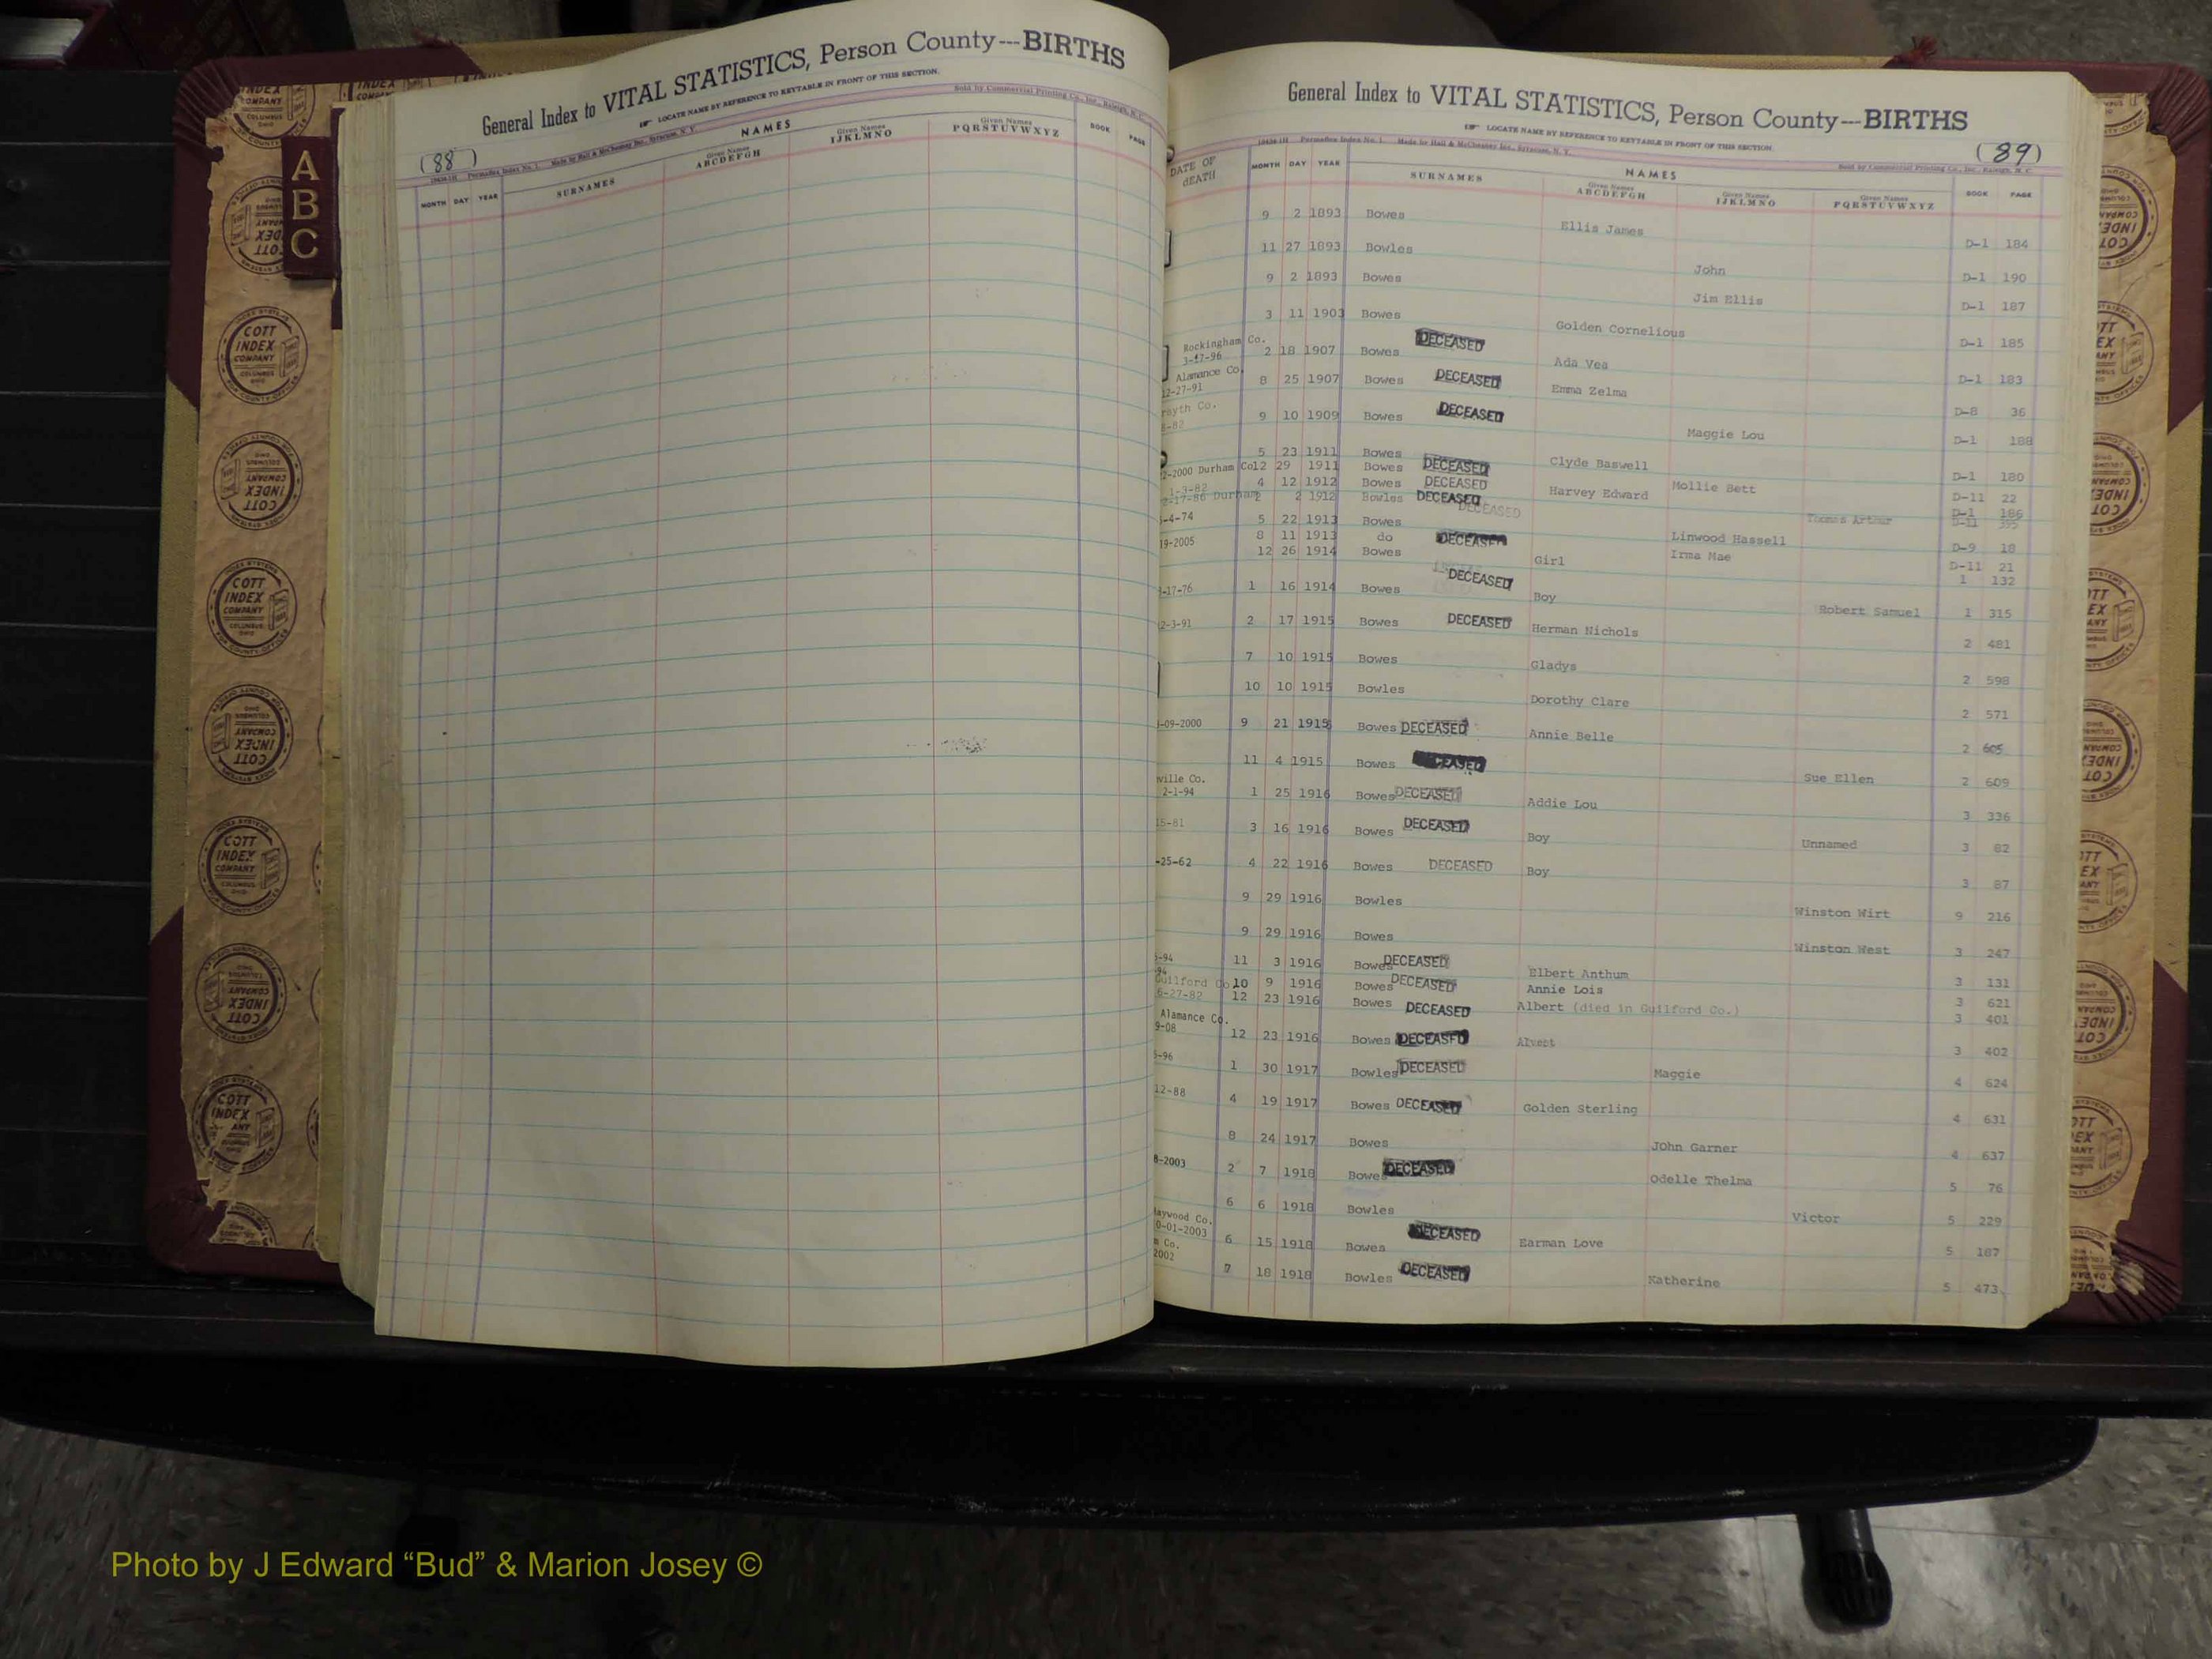 General Index to VITAL STATISTICS, Person County---BIRTHS
LOCATE NAME BY REFERENCE TO KEYTABLE IN FRONT OF THIS SECTION.
(88)
Sold by Commercial Printing Co., Inc., Raleigh, N. C.
Permaflex Index No. 1. Made by Hall & McChesney Inc., Syracuse, N. Y.
MONTH DAY YEAR SURNAMES NAMES Given Names ABCDEFGH Given Names IJKLMNO Given Names PQRSTUVWXYZ BOOK PAGE
A
B
C
General Index to VITAL STATISTICS, Person County---BIRTHS
LOCATE NAME BY REFERENCE TO KEYTABLE IN FRONT OF THIS SECTION.
(89)
Permaflex Index No. 1. Made by Hall & McChesney Inc., Syracuse, N. Y.
Sold by Commercial Printing Co., Inc., Raleigh, N. C.
DATE OF DEATH MONTH DAY YEAR SURNAMES NAMES Given Names ABCDEFGH Given Names IJKLMNO Given Names PQRSTUVWXYZ BOOK PAGE
9 2 1893 Bowes Ellis James D-1 184
11 27 1893 Bowles John D-1 190
9 2 1893 Bowes Jim Ellis D-1 187
3 11 1903 Bowes Golden Cornelious D-1 185
Rockingham Co. 3-17-96 2 18 1907 Bowes DECEASED Ada Vea D-1 183
Alamance Co. 12-27-91 8 25 1907 Bowes DECEASED Emma Zelma D-8 36
9 10 1909 Bowes DECEASED Maggie Lou D-1 188
5 23 1911 Bowes Clyde Baswell D-1 180
2-2000 Durham Co 12 29 1911 Bowes DECEASED Mollie Bett D-11 22
1-3-82 4 12 1912 Bowes DECEASED Harvey Edward D-1 186
Durham 2 1912 Bowles DECEASED DECEASED Thomas Arthur D-11
-4-74 5 22 1913 Bowes Linwood Hassell D-9 18
19-2005 8 11 1913 do DECEASED Irma Mae D-11 21
12 26 1914 Bowes Girl 1 132
-17-76 1 16 1914 Bowes DECEASED Boy Robert Samuel 1 315
2-3-91 2 17 1915 Bowes DECEASED Herman Nichols 2 481
7 10 1915 Bowes Gladys 2 598
10 10 1915 Bowles Dorothy Clare 2 571
-09-2000 9 21 1915 Bowes DECEASED Annie Belle 2 605
11 4 1915 Bowes DECEASED Sue Ellen 2 609
ville Co. 2-1-94 1 25 1916 Bowes DECEASED Addie Lou 3 336
15-81 3 16 1916 Bowes DECEASED Boy Unnamed 3 82
-25-62 4 22 1916 Bowes DECEASED Boy 3 87
9 29 1916 Bowles Winston Wirt 9 216
9 29 1916 Bowes Winston West 3 247
-94 11 3 1916 Bowes DECEASED Elbert Anthum 3 131
-94 10 9 1916 Bowes DECEASED Annie Lois 3 621
Guilford Co 6-27-82 12 23 1916 Bowes DECEASED Albert (died in Guilford Co.) 3 401
Alamance Co. 9-08 12 23 1916 Bowes DECEASED 3 402
-96 1 30 1917 Bowles DECEASED Maggie 4 624
12-88 4 19 1917 Bowes DECEASED Golden Sterling 4 631
8 24 1917 Bowes John Garner 4 637
8-2003 2 7 1918 Bowes DECEASED Odelle Thelma 5 76
6 6 1918 Bowles Victor 5 229
Haywood Co. 0-01-2003 6 15 1918 Bowes DECEASED Earman Love 5 187
m Co. 2002 7 18 1918 Bowles DECEASED Katherine 5 473
COTT INDEX COMPANY COLUMBUS OHIO
Photo by J Edward “Bud” & Marion Josey ©